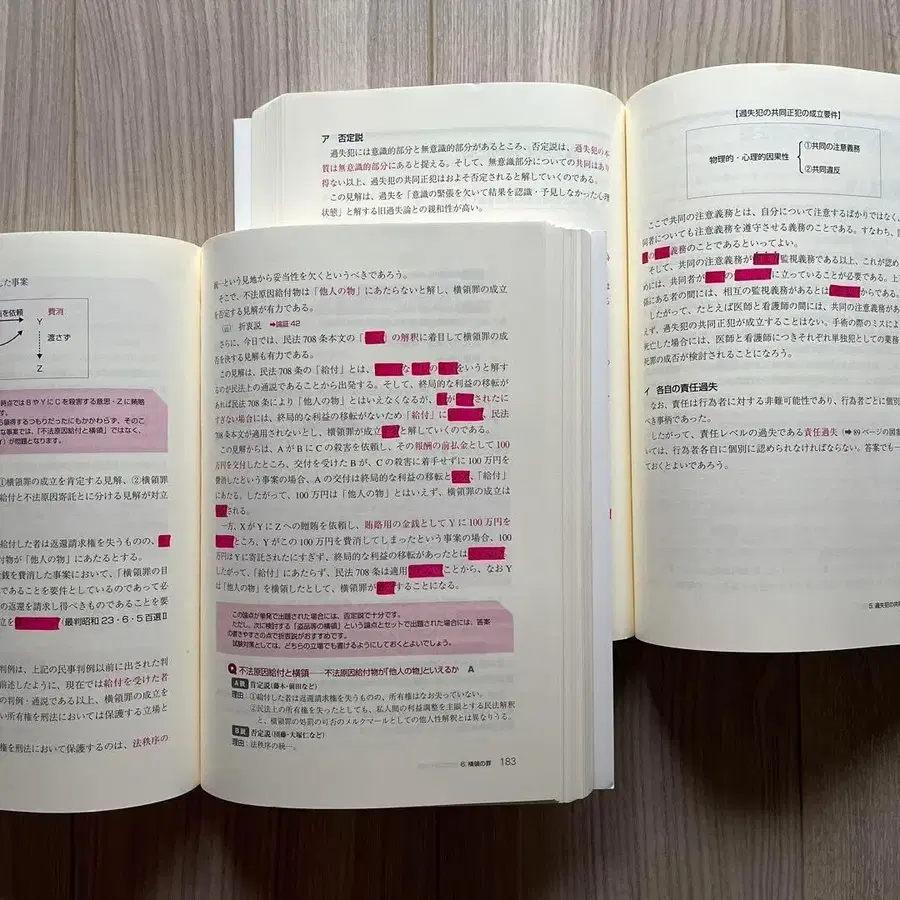 ア 否定説
過失犯には意識的部分と無意識的部分があるところ、否定説は、過失犯の本
質は無意識的部分にあると捉える。そして、無意識部分についての共同はあり
得ない以上、過失犯の共同正犯はおよそ否定されると解していくのである。
この見解は、過失を「意識の緊張を欠いて結果を認識・予見しなかった心理
状態」と解する旧過失論との親和性が高い。
【過失犯の共同正犯の成立要件】
物理的・心理的因果性
①共同の注意義務
②共同違反
ここで共同の注意義務とは、自分について注意するばかりではなく、
同者についても注意義務を遵守させる義務のことである。すなわち、
の 義務のことであるといってよい。
そして、共同の注意義務が 監視義務である以上、これが認め
めには、共同者が の に立っていることが必要である。
係にある者の間には、相互の監視義務があるとは からである。
したがって、たとえば医師と看護師の間には、共同の注意義務があ
えず、過失犯の共同正犯が成立することはない。手術の際のミスによ
死亡した場合には、医師と看護師につきそれぞれ単独犯としての業務
死罪の成否が検討されることになろう。
イ 各自の責任過失
なお、責任は行為者に対する非難可能性であり、行為者ごとに個別
べき事柄であった。
したがって、責任レベルの過失である責任過失(➡89ページの図
いては、行為者各自に個別に認められなければならない。答案でも一
ておくとよいであろう。
5. 過失犯の共
した事案
を依頼
Y
費消
渡さず
Z
時点ではBやYにCを殺害する意思・Zに賄賂
す。
ら領得するつもりだったにもかかわらず、そのこ
な事案では、「不法原因給付と横領」ではなく、
が問題となります。
①横領罪の成立を肯定する見解、②横領
給付と不法原因寄託とに分ける見解が対立
給付した者は返還請求権を失うものの、
付物が「他人の物」にあたるとする。
金銭を費消した事案において、「横領罪の目
であることを要件としているのであって必
の返還を請求し得べきものであることを要
立を (最判昭和23・6・5百選Ⅱ
判例は、上記の民事判例以前に出された判
前述したように、現在では給付を受けた者
の判例・通説である以上、横領罪の成立を
い所有権を刑法においては保護する立場と
権を刑法において保護するのは、法秩序の
統一という見地から妥当性を欠くというべきであろう。
そこで、不法原因給付物は「他人の物」にあたらないと解し、横領罪の成立
を否定する見解が有力である。
(ⅲ) 折衷説 ➡論証42
さらに、今日では、民法708条本文の「 」の解釈に着目して横領罪の成
否を決する見解も有力である。
この見解は、民法708条の「給付」とは、 な の をいうと解す
るのが民法上の通説であることから出発する。そして、終局的な利益の移転が
あれば民法708条により「他人の物」とはいえなくなるが、 が されたに
すぎない場合には、終局的な利益の移転がないため「給付」に 、民法
708条本文が適用されないとし、横領罪が成立 と解していくのである。
この見解からは、AがBにCの殺害を依頼し、その報酬の前払金として100
万円を交付したところ、交付を受けたBが、Cの殺害に着手せずに100万円を
費消したという事案の場合、Aの交付は終局的な利益の移転と 、「給付」
にあたる。したがって、100万円は「他人の物」とはいえず、横領罪の成立は
される。
一方、XがYにZへの贈賄を依頼し、賄賂用の金銭としてYに100万円を
ところ、Yがこの100万円を費消してしまったという事案の場合、100
万円はYに寄託されたにすぎず、終局的な利益の移転があったとは 。
したがって、「給付」にあたらず、民法708条は適用 ことから、なおY
は「他人の物」を横領したとして、横領罪が することになる。
この論点が単発で出題された場合には、否定説で十分です。
ただし、次に検討する「盗品等の横領」という論点とセットで出題された場合には、答案
の書きやすさの点で折衷説がおすすめです。
試験対策としては、どちらの立場でも書けるようにしておくとよいでしょう。
Q 不法原因給付と横領——不法原因給付物が「他人の物」といえるか A
A説 肯定説(藤木・前田など)
理由:①給付した者は返還請求権を失うものの、所有権はなお失っていない。
②民法上の所有権を失ったとしても、私人間の利益調整を主眼とする民法解釈
と、横領罪の処罰の可否のメルクマールとしての他人性解釈とは異なりうる。
B説 否定説(団藤・大塚仁など)
理由:法秩序の統一。
6. 横領の罪 183